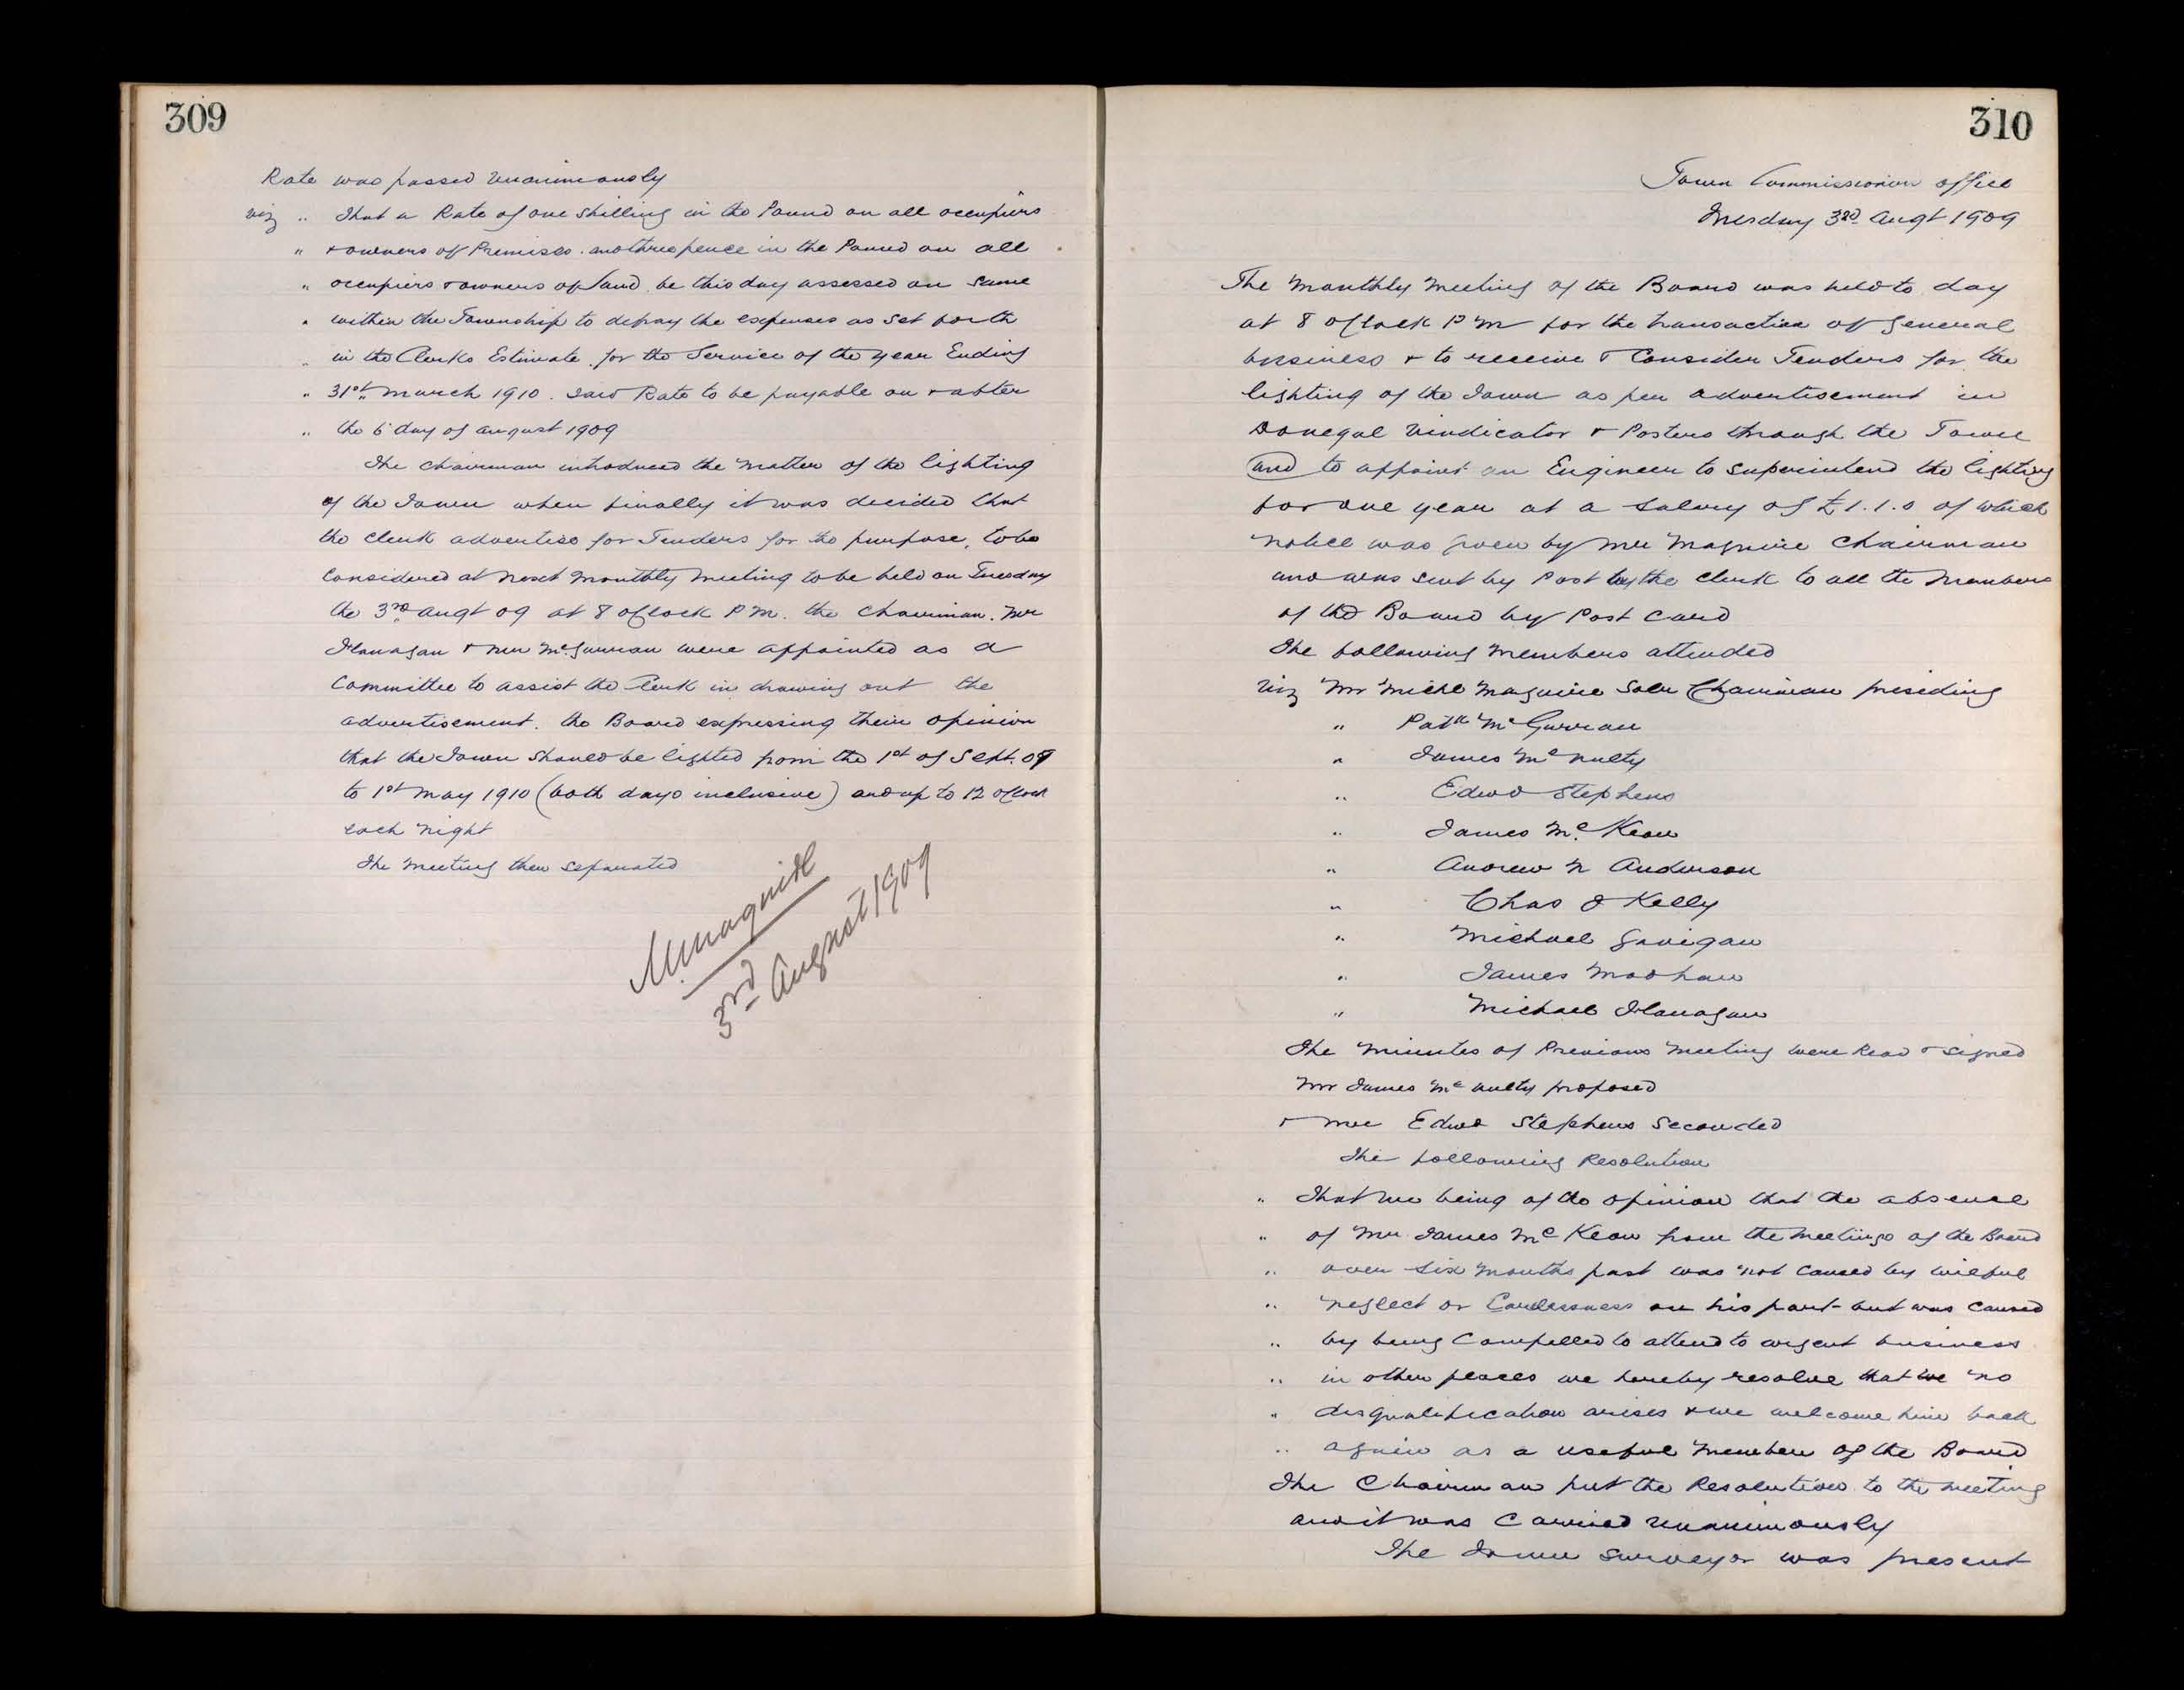 309
Rate was passed unanimously
viz " That a Rate of one Shilling in the Pound on all occupiers
" & owners of Premises and threepence in the Pound on all
" occupiers & owners of Land be this day assessed on same
" within the Township to defray the expenses as set forth
" in the Clerks Estimate for the Service of the year Ending
" 31st March 1910. Said Rate to be payable on & after
" the 6 day of August 1909
The Chairman introduced the matter of the lighting
of the Town when finally it was decided that
the Clerk advertise for Tenders for the purpose, to be
Considered at next monthly meeting to be held on Tuesday
the 3rd Augt 09 at 8 oClock P.M. the Chairman. Mr
Flanagan & Mr McGurran were appointed as a
Committee to assist the Clerk in drawing out the
advertisement. the Board expressing their opinion
that the Town should be lighted from the 1st of Sept. 09
to 1st May 1910 (both days inclusive) and up to 12 oClock
each night
The meeting then separated
M. Maguire
3rd August 1909
310
Town Commissioners office
Tuesday 3rd Augt 1909
The Monthly Meeting of the Board was held to day
at 8 oClock P M for the transaction of General
business & to receive & Consider Tenders for the
lighting of the Town as per advertisement in
Donegal Vindicator & Posters through the Town
and to appoint an Engineer to superintend the lighting
for one year at a Salary of £1.1.0 of which
notice was given by Mr Maguire Chairman
and was sent by Post by the Clerk to all the Members
of the Board by Post Card
The following Members attended
Viz Mr Michl Maguire Solr Chairman presiding
" Patk McGurran
" James McNulty
" Edwd Stephens
" James Mc.Keon
" Andrew N Anderson
" Chas J Kelly
" Michael Gavigan
" James Modhan
" Michael Flanagan
The Minutes of Previous Meeting were Read & signed
Mr James McNulty proposed
& Mr Edwd Stephens Seconded
The following Resolution
" That we being of the opinion that the absence
" of Mr James McKeon from the Meetings of the Board
" over six months past was not caused by wilful
" neglect or Carelessness on his part but was caused
" by being Compelled to attend to urgent business
" in other places we hereby resolve that we no
" disqualification arises & we welcome him back
" again as a useful Member of the Board
The Chairman put the Resolution to the meeting
and it was Carried unanimously
The Town Surveyor was present